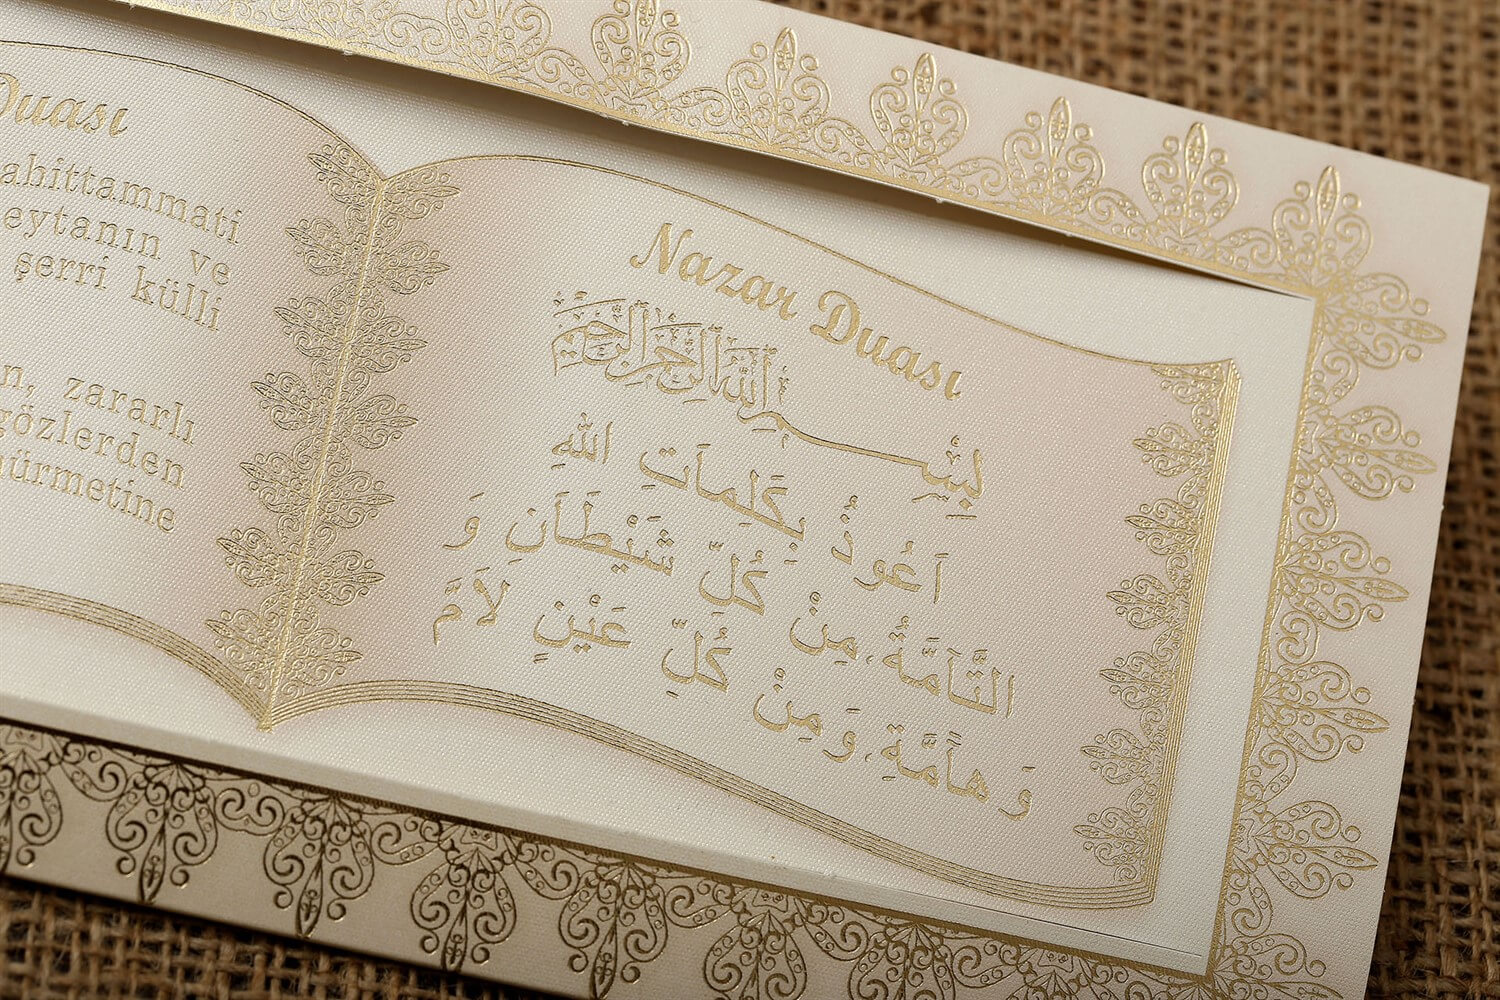 Duası
ahittammati
eytanın ve
şerri külli
n, zararlı
gözlerden
hürmetine
Nazar Duası
بِسْمِ اللّٰهِ الرَّحْمٰنِ الرَّحِيمِ
اَعُوذُ بِكَلِمَاتِ اللهِ
التَّآمَّةُ مِنْ كُلِّ شَيْطَانٍ وَ
وَ هاَمَّةٍ وَمِنْ كُلِّ عَيْنٍ لاَمَّ